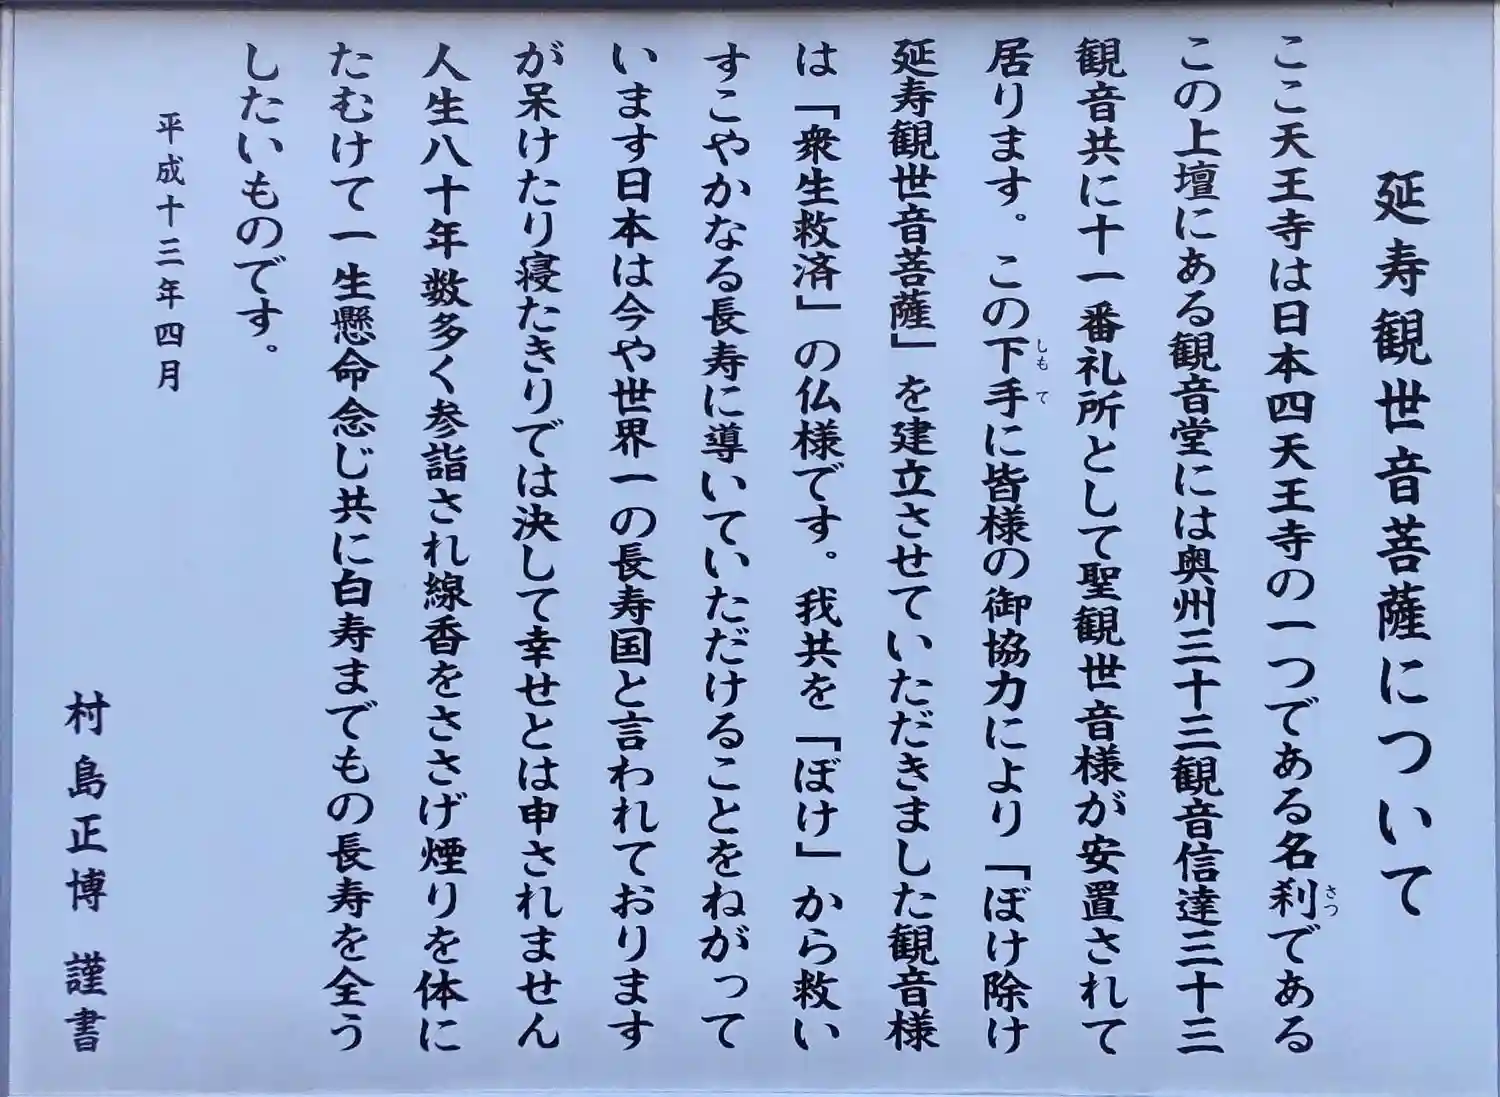 延寿観世音菩薩について
ここ天王寺は日本四天王寺の一つである名刹である
さつ
この上壇にある観音堂には奥州三十三観音信達三十三
観音共に十一番礼所として聖観世音様が安置されて
居ります。この下手に皆様の御協力により「ぼけ除け
しもて
延寿観世音菩薩」を建立させていただきました観音様
は「衆生救済」の仏様です。我共を「ぼけ」から救い
すこやかなる長寿に導いていただけることをねがって
います日本は今や世界一の長寿国と言われております
が呆けたり寝たきりでは決して幸せとは申されません
人生八十年数多く参詣され線香をささげ煙りを体に
たむけて一生懸命念じ共に白寿までもの長寿を全う
したいものです。
平成十三年四月
村島正博 謹書